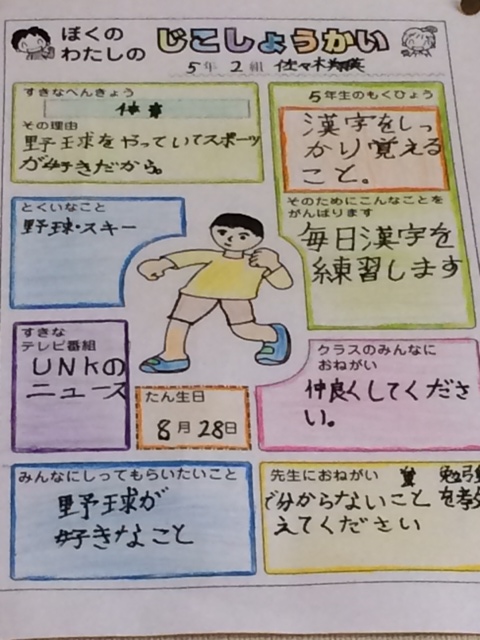 ぼくの
わたしの
じこしょうかい
5年 2組 佐々木
すきなべんきょう
体育
その理由
野球をやっていてスポーツ
が好きだから。
5年生のもくひょう
漢字をしっ
かり覚える
こと。
そのためにこんなことを
がんばります
毎日漢字を
練習します
とくいなこと
野球・スキー
すきな
テレビ番組
UNKの
ニュース
たん生日
8月28日
クラスのみんなに
おねがい
仲良くしてくださ
い。
みんなにしってもらいたいこと
野球が
好きなこと
先生におねがい
勉強
で分からないことを教
えてください